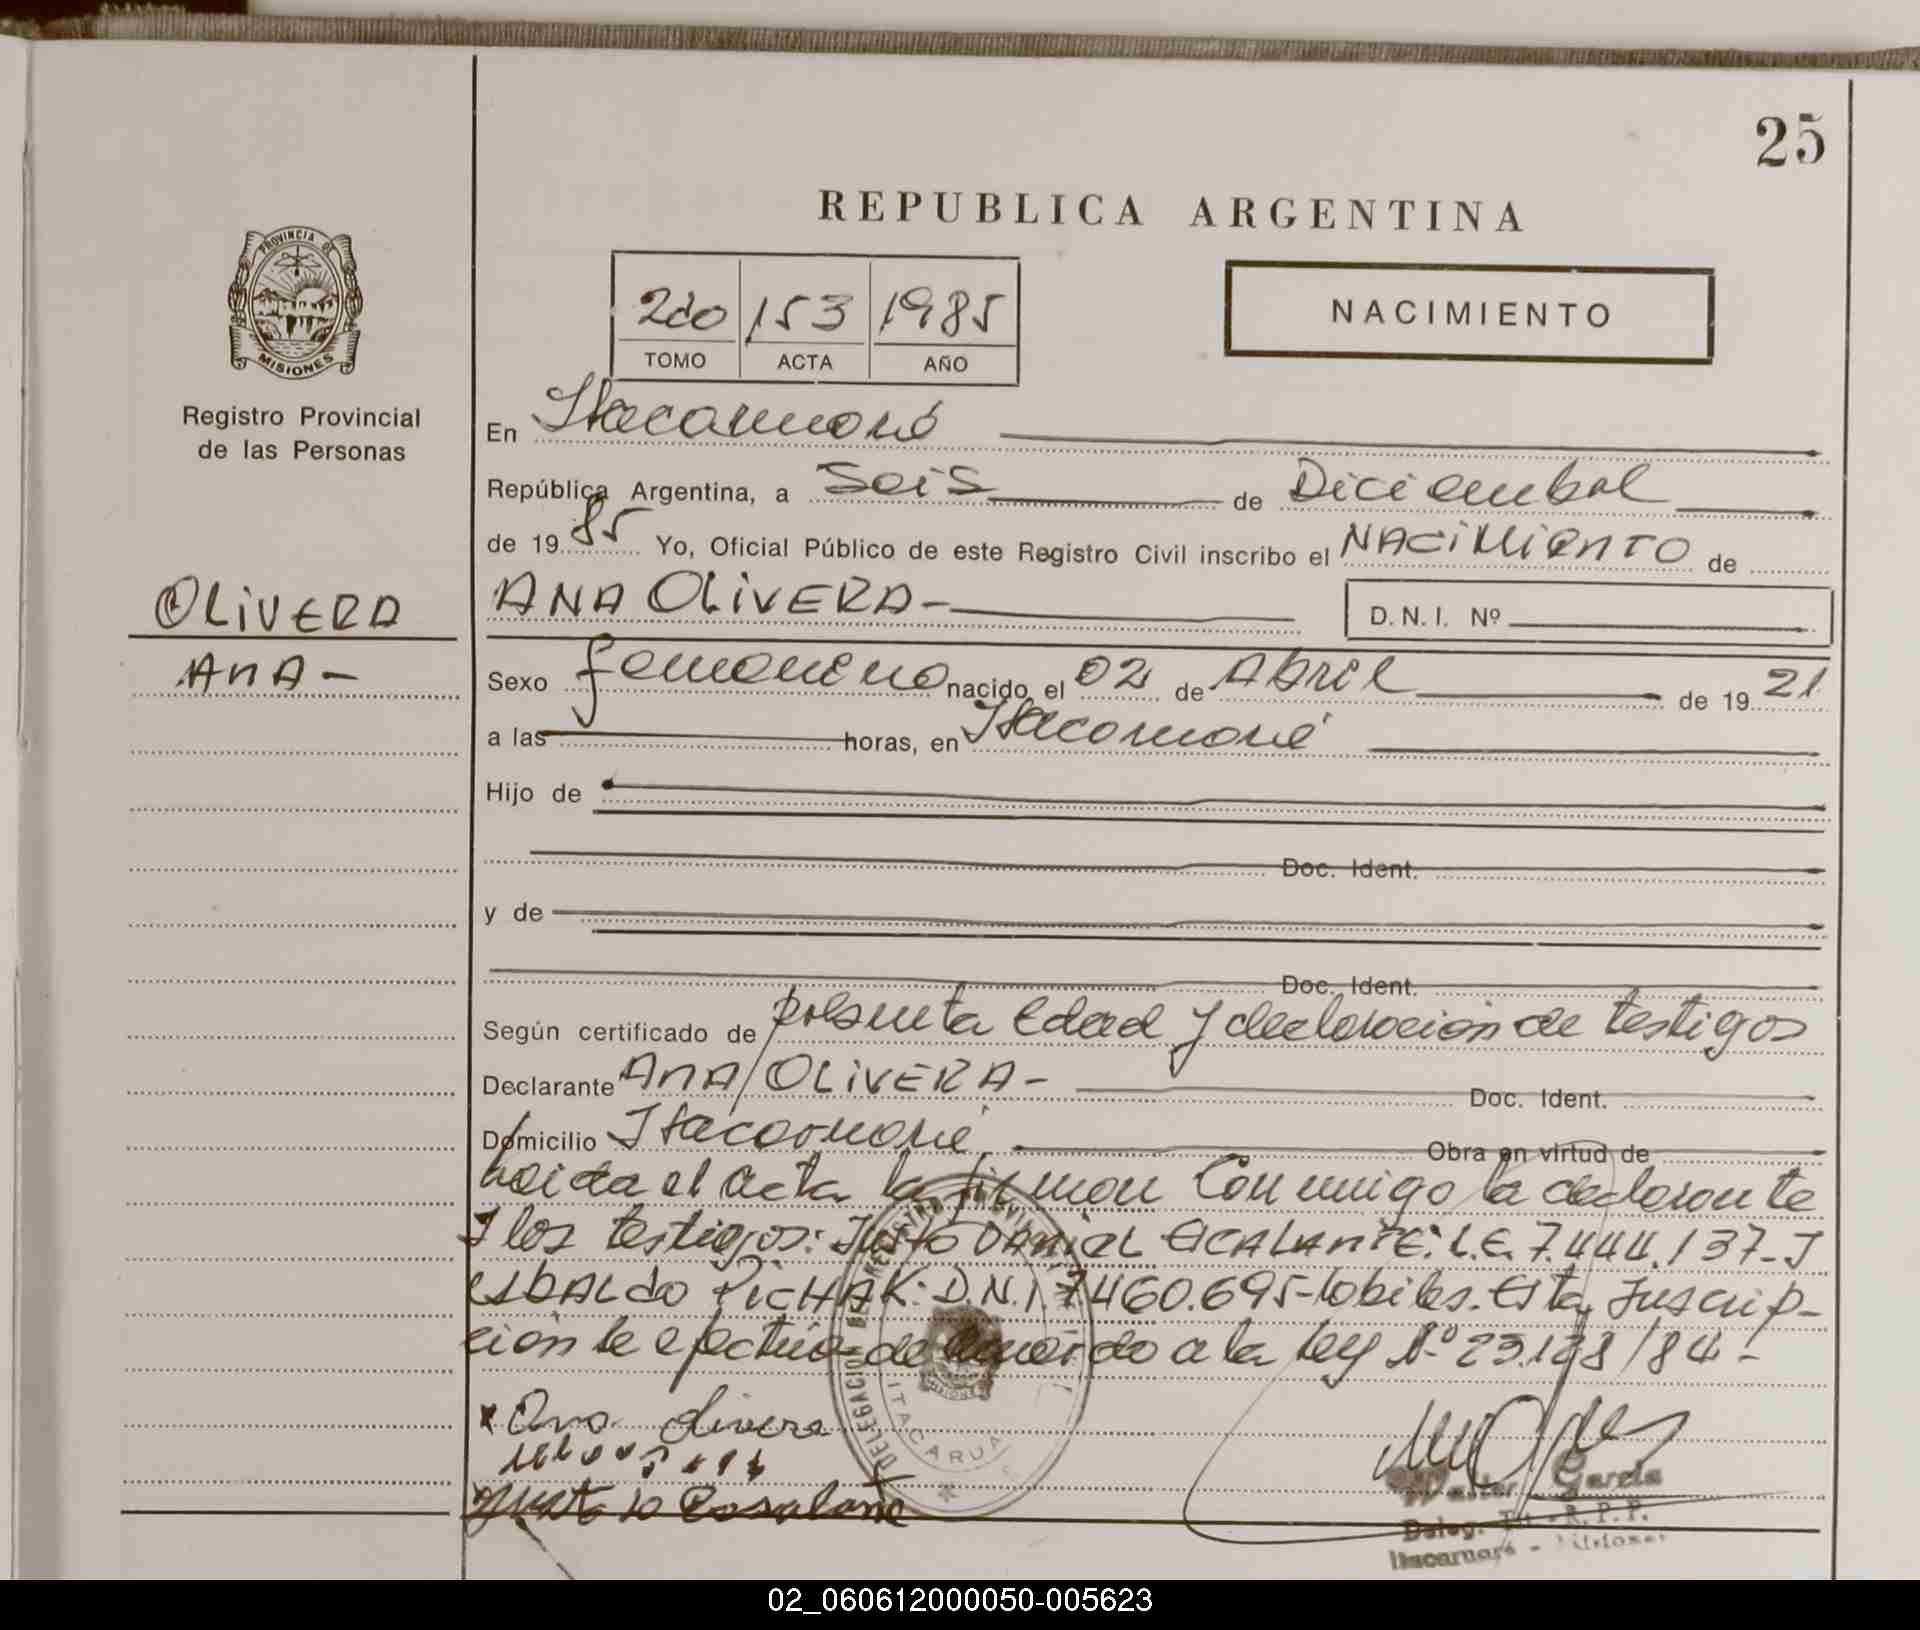 25
REPUBLICA ARGENTINA
PROVINCIA DE
MISIONES
Registro Provincial
de las Personas
2do 153 1985
TOMO ACTA AÑO
NACIMIENTO
En Itacaruaré
República Argentina, a Seis de Diciembre
de 1985 Yo, Oficial Público de este Registro Civil inscribo el NACIMIENTO de
OLIVERA
ANA OLIVERA-
D.N.I. Nº
ANA-
Sexo femenino nacido el 02 de Abril de 1921
a las horas, en Itacaruaré
Hijo de
Doc. Ident.
y de
Doc. Ident.
Según certificado de presunta edad y declaración de testigos
Declarante ANA OLIVERA- Doc. Ident.
Domicilio Itacaruaré Obra en virtud de
Leida el acta la firman conmigo la declarante
y los testigos: JUSTO DANIEL ESCALANTE: L.E. 7.444.137- y
PICHAK: D.N.I. 7.460.695- hábiles. Esta Inscrip-
ción se efectúa de acuerdo a la ley Nº 23.128/84-
x Ana Olivera
ITACARUA
Walter García
Deleg. R.P.P.
Itacaruaré - Misiones
02_060612000050-005623